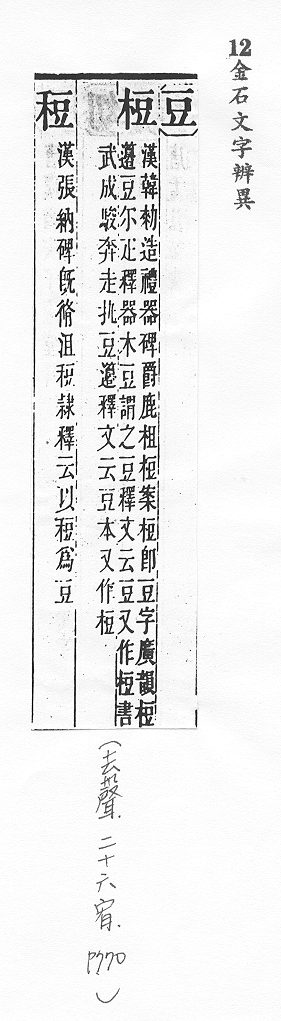 12金石文字辨異
豆
桓 漢韓勑造禮器碑爵鹿柤桓籩桓即豆字廣韻桓
籩豆尔疋釋器木豆謂之豆釋文云豆又作桓書
武成駿奔走執豆籩釋文云豆本又作桓
䄈 漢張納碑旣脩沮䄈隷釋云以䄈爲豆
(去聲.二十六宥.P770)